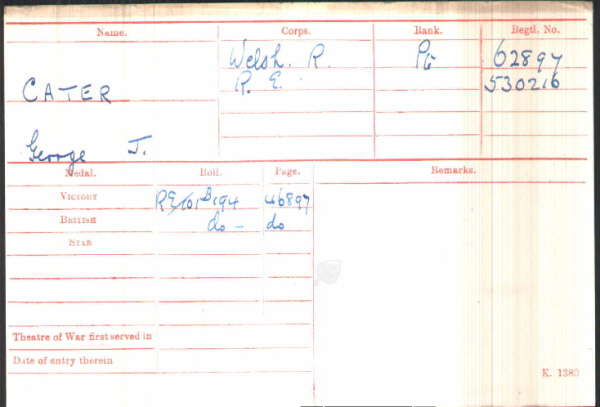 Name. Corps. Rank. Regtl. No.
Welsh. R. Pte 62897
CATER R. E. 530216
George J.
Medal. Roll. Page. Remarks.
VICTORY RE/101 B 194 46897
BRITISH do - do
STAR
Theatre of War first served in
Date of entry therein
K. 1380